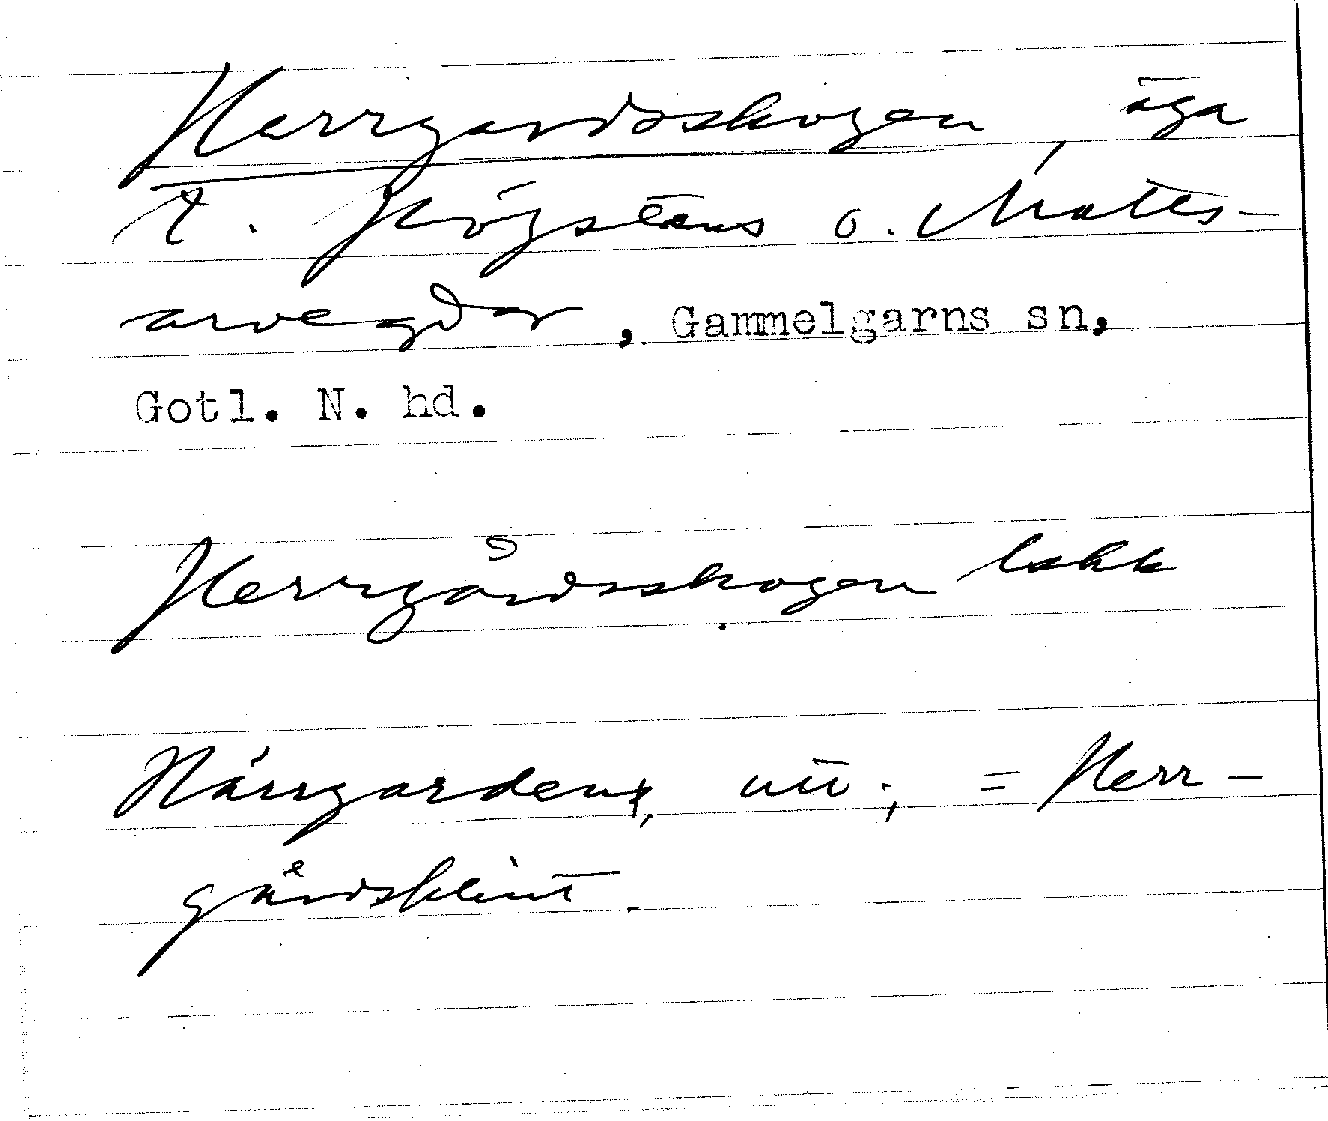 Herrgardsskogen, äga
t. Högstens o. Matts-
arve gdar, Gammelgarns sn,
Gotl. N. hd.
Herrgårdsskogen lokk
Härrgardens, utt.; = Herr-
gårdsklint.